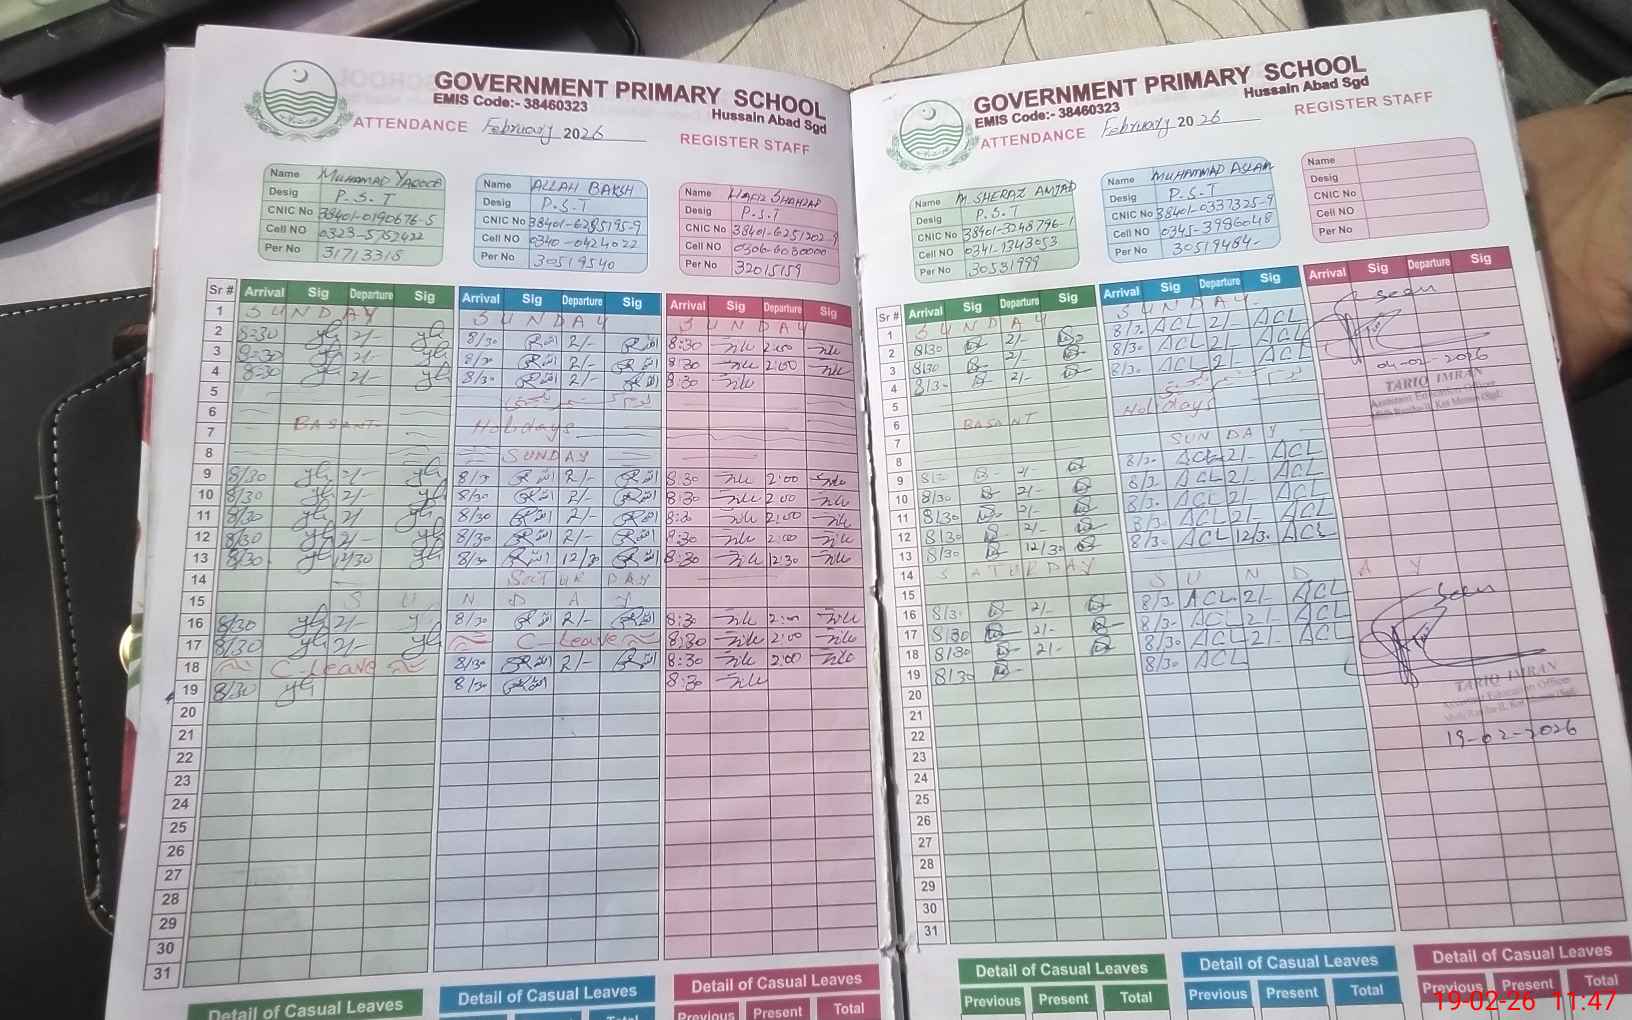 GOVERNMENT PRIMARY SCHOOL
EMIS Code:- 38460323
Hussain Abad Sgd
ATTENDANCE February 2026
REGISTER STAFF
Name MUHAMAD YAQOOB
Desig P.S.T
CNIC No 38401-0190676-5
Cell NO 0323-5752422
Per No 31713318
Name ALLAH BAKSH
Desig P.S.T
CNIC No 38401-6285195-9
Cell NO 0340-0424022
Per No 30519540
Name HAFIZ SHAHZAD
Desig P.S.T
CNIC No 38401-6251202-9
Cell NO 0306-6030000
Per No 32015159
Sr # Arrival Sig Departure Sig Arrival Sig Departure Sig Arrival Sig Departure Sig
1 SUNDAY SUNDAY SUNDAY
2 8:30 2/- 8/30 2/- 8:30 2:00
3 8:30 2/- 8/30 2/- 8:30 2:00
4 8:30 2/- 8/30 2/- 8:30
5
6 BASANT Holidays
7
8 SUNDAY
9 8/30 2/- 8/30 2/- 8:30 2:00
10 8/30 2/- 8/30 2/- 8:30 2:00
11 8/30 2/ 8/30 2/- 8:30 2:00
12 8/30 2/- 8/30 2/- 8:30 2:00
13 8/30 12/30 8/30 12/30 8:30 12:30
14 SATURDAY
15 SUNDAY
16 8/30 2/- 8/30 2/- 8:30 2:00
17 8/30 2/- C-Leave 8:30 2:00
18 C-Leave 8/30 2/- 8:30 2:00
19 8/30 8/30 8:30
20
21
22
23
24
25
26
27
28
29
30
31
Detail of Casual Leaves
Detail of Casual Leaves
Detail of Casual Leaves
Previous Present Total
GOVERNMENT PRIMARY SCHOOL
EMIS Code:- 38460323
Hussain Abad Sgd
ATTENDANCE February 2026
REGISTER STAFF
Name M. SHERAZ AMJAD
Desig P.S.T
CNIC No 38401-3248796-1
Cell NO 0341-1343053
Per No 30531999
Name MUHAMMAD ASLAM
Desig P.S.T
CNIC No 38401-0337325-9
Cell NO 0345-3986048
Per No 30519484-
Name
Desig
CNIC No
Cell NO
Per No
Sr # Arrival Sig Departure Sig Arrival Sig Departure Sig Arrival Sig Departure Sig
1 SUNDAY SUNDAY
2 8/30 2/- 8/30 ACL 2/- ACL
3 8/30 2/- 8/30 ACL 2/- ACL
4 8/30 2/- 8/30 ACL 2/- ACL
Seen
04-02-2026
TARIQ IMRAN
Assistant Education Officer
5
6 BASANT Holidays
7
8 SUNDAY
9 8/30 2/- 8/30 ACL 2/- ACL
10 8/30 2/- 8/30 ACL 2/- ACL
11 8/30 2/- 8/30 ACL 2/- ACL
12 8/30 2/- 8/30 ACL 2/- ACL
13 8/30 12/30 8/30 ACL 12/30 ACL
14 SATURDAY
15 SUNDAY
16 8/30 2/- 8/30 ACL 2/- ACL
17 8/30 2/- 8/30 ACL 2/- ACL
18 8/30 2/- 8/30 ACL 2/- ACL
19 8/30 8/30 ACL
Seen
TARIQ IMRAN
Assistant Education Officer
19-02-2026
20
21
22
23
24
25
26
27
28
29
30
31
Detail of Casual Leaves
Detail of Casual Leaves
Detail of Casual Leaves
Previous Present Total
Previous Present Total
Previous Present Total
19-02-26 11:47